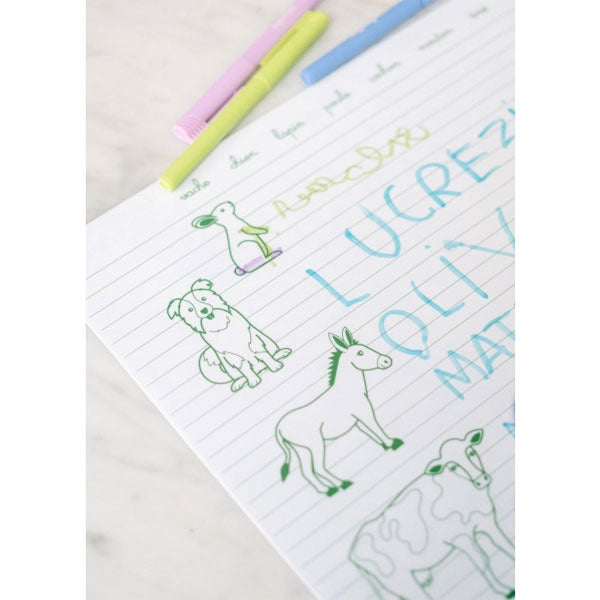 vache chien lapin poule cochon mouton âne
LUCREZI
OLIV
MAT